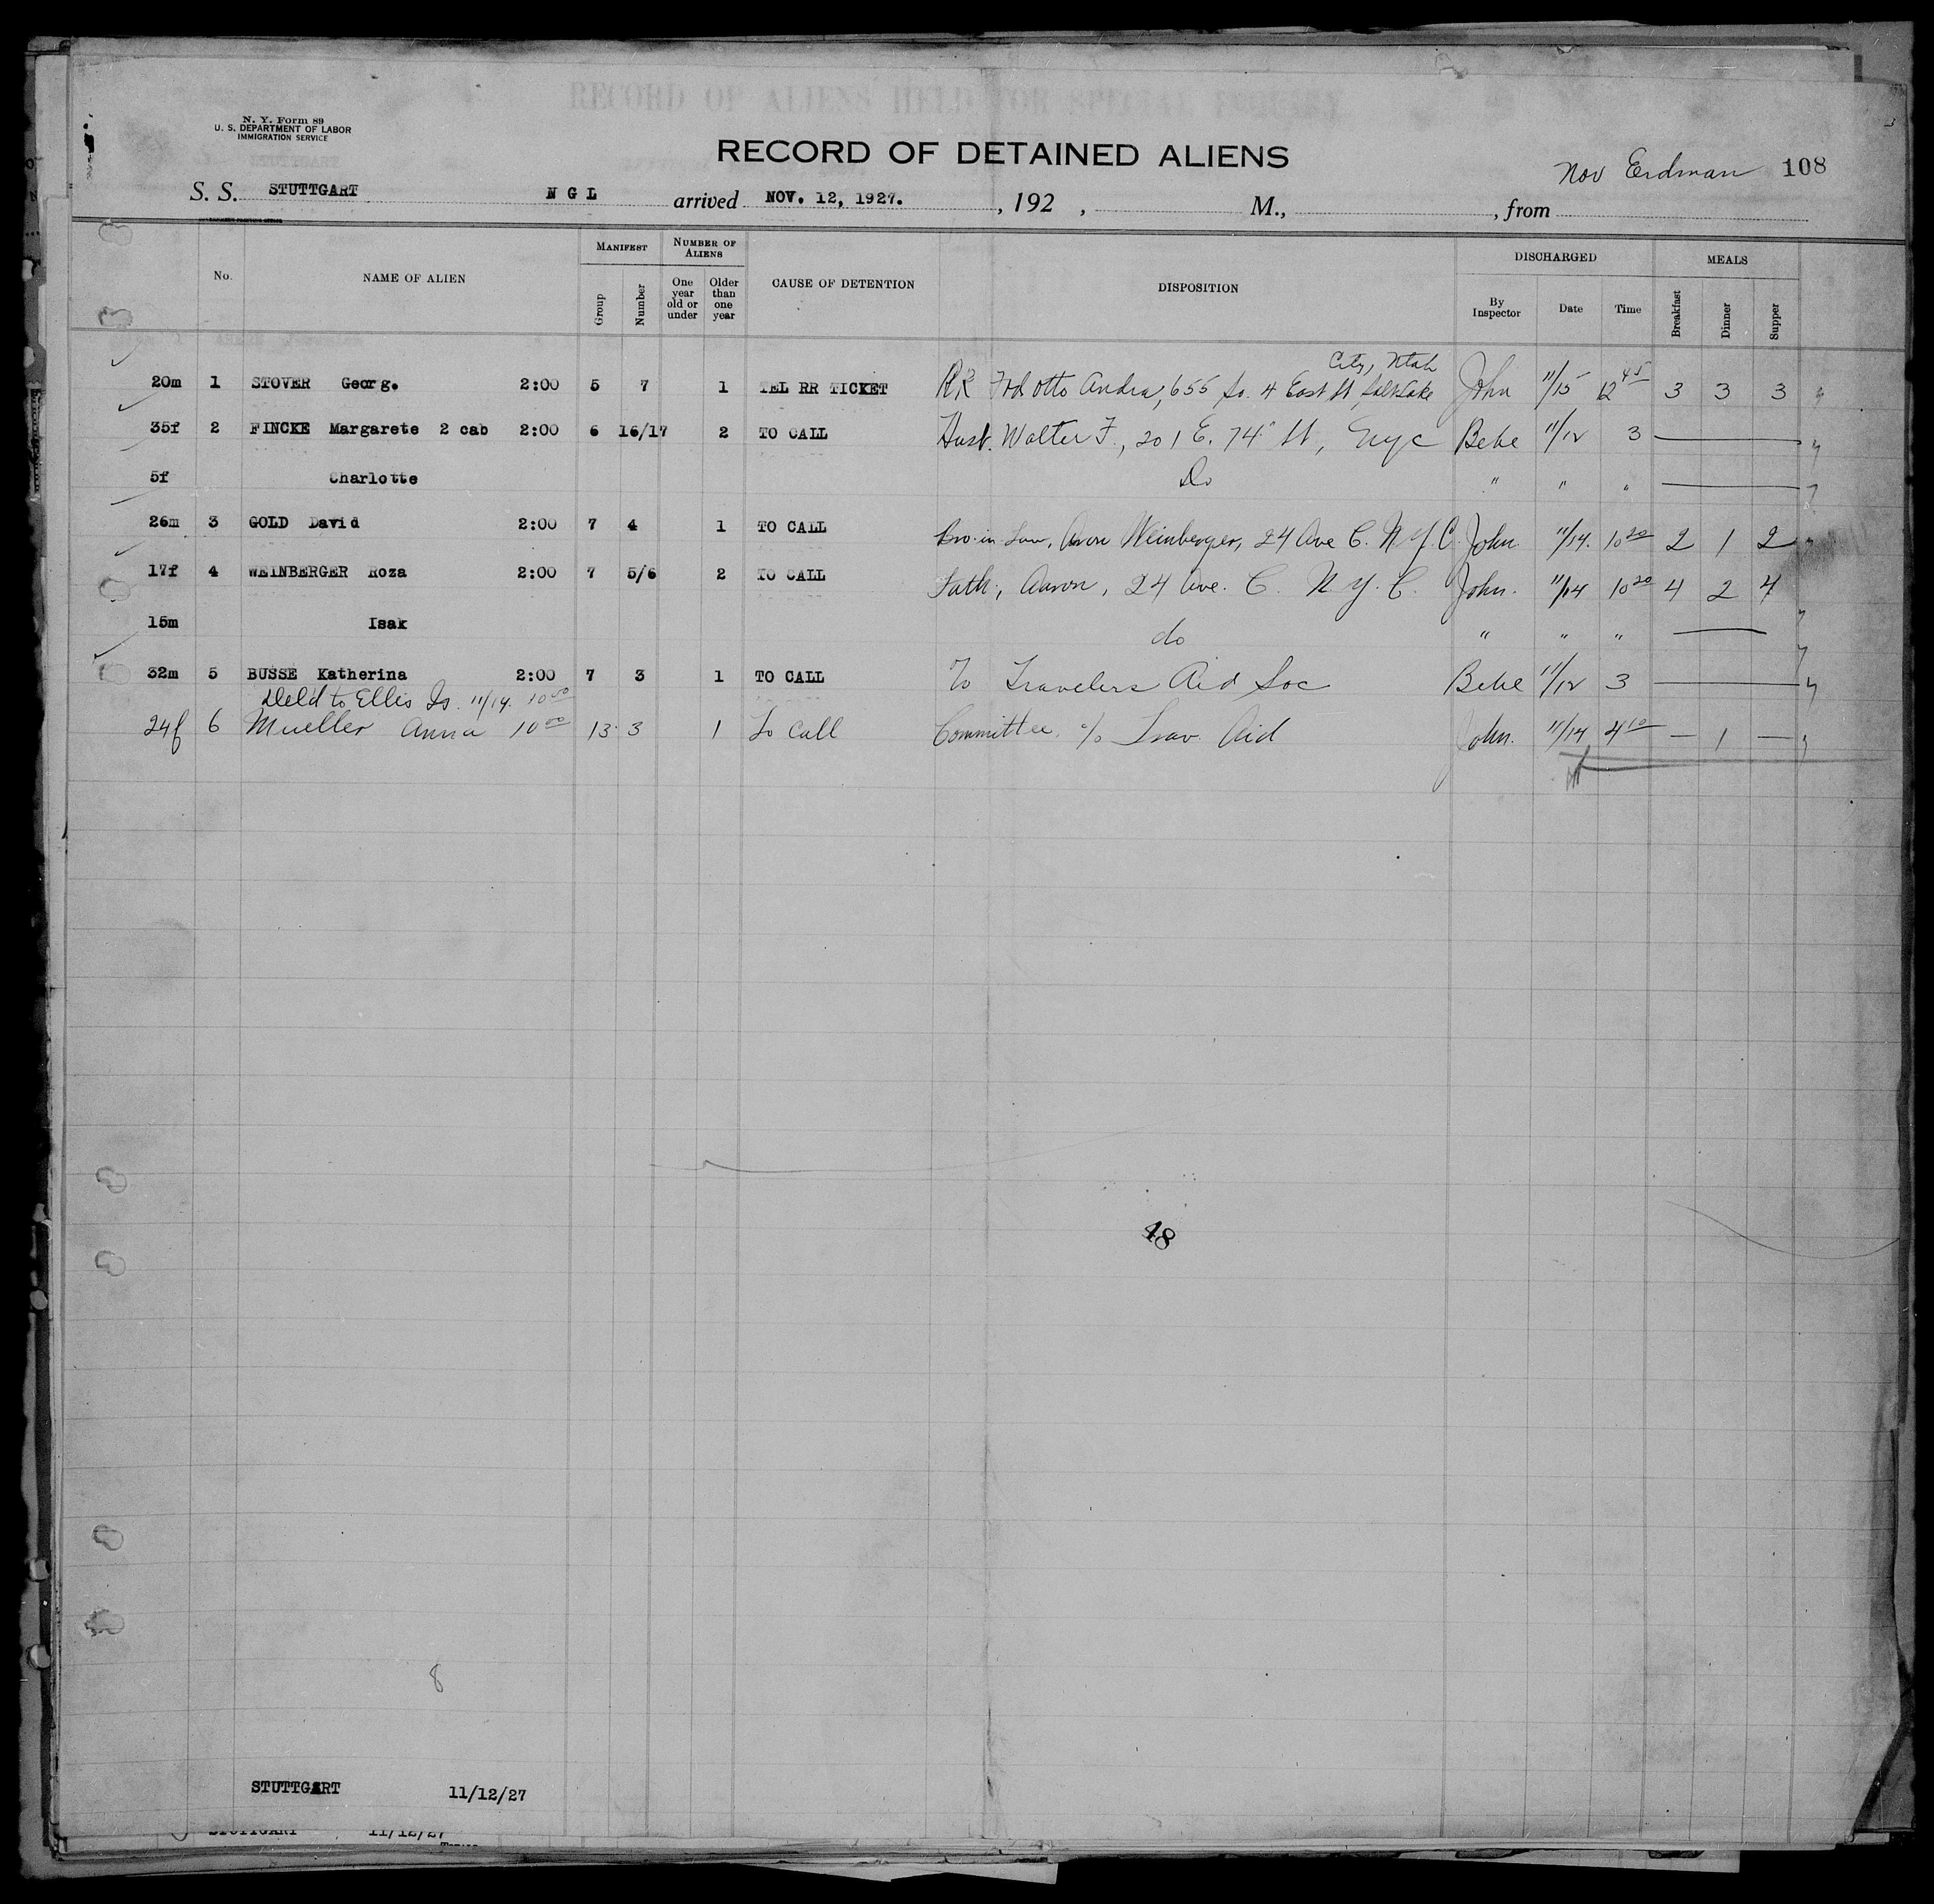 RECORD OF ALIENS HELD FOR SPECIAL INQUIRY
N. Y. Form 89
U. S. DEPARTMENT OF LABOR
IMMIGRATION SERVICE
RECORD OF DETAINED ALIENS
Nov Erdman 108
S. S. STUTTGART N G L arrived NOV. 12, 1927. , 192 , M., , from
No. NAME OF ALIEN MANIFEST Group Number NUMBER OF ALIENS One year old or under Older than one year CAUSE OF DETENTION DISPOSITION DISCHARGED By Inspector Date Time MEALS Breakfast Dinner Supper
City, Utah
20m 1 STOVER Georg. 2:00 5 7 1 TEL RR TICKET RR Otto Andra, 655 So. 4 East St Salt Lake John 11/15 12 45 3 3 3
35f 2 FINCKE Margarete 2 cab 2:00 6 16/17 2 TO CALL Husb. Walter F., 201 E. 74" St, Nyc Bebe 11/12 3
5f Charlotte Do " " "
26m 3 GOLD David 2:00 7 4 1 TO CALL Bro-in Law, Aron Weinberger, 24 Ave C. N.Y.C. John 11/14. 10 20 2 1 2
17f 4 WEINBERGER Roza 2:00 7 5/6 2 TO CALL Fath, Aaron, 24 Ave. C. N.Y.C. John. 11/14 10 20 4 2 4
15m Isak do " " "
32m 5 BUSSE Katherina 2:00 7 3 1 TO CALL To Travelers Aid Soc Bebe 11/12 3
Deld to Ellis Is. 11/14. 10 50
24f 6 Mueller Anna 10 00 13 3 1 To Call Committee % Trav. Aid John. 11/14 4 10 — 1 —
48
8
STUTTGART 11/12/27
STUTTGART 11/12/27